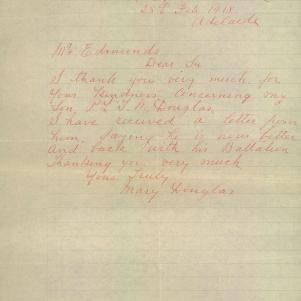 25th Feb 1918
Adelaide
Mr Edmunds
Dear Sir
I thank you very much for
Your Kindness, Concerning my
Son, Pte T. A. Douglas,
I have received a letter from
him, saying he is now better
And back with his Battalion
Thanking you very much
Yours Truly
Mary Douglas